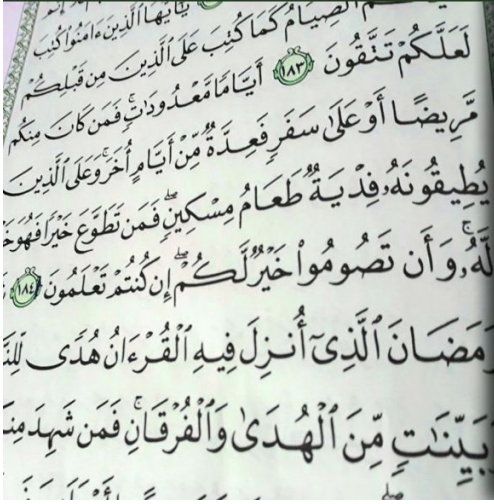 يَٰٓأَيُّهَا ٱلَّذِينَ ءَامَنُوا۟ كُتِبَ
ٱلصِّيَامُ كَمَا كُتِبَ عَلَى ٱلَّذِينَ مِن قَبْلِكُمْ
لَعَلَّكُمْ تَتَّقُونَ ١٨٣ أَيَّامًا مَّعْدُودَٰتٍۚ فَمَن كَانَ مِنكُم
مَّرِيضًا أَوْ عَلَىٰ سَفَرٍ فَعِدَّةٌ مِّنْ أَيَّامٍ أُخَرَۚ وَعَلَى ٱلَّذِينَ
يُطِيقُونَهُۥ فِدْيَةٌ طَعَامُ مِسْكِينٍۖ فَمَن تَطَوَّعَ خَيْرًا فَهُوَ خَ
لَّهُۥۚ وَأَن تَصُومُوا۟ خَيْرٌ لَّكُمْۖ إِن كُنتُمْ تَعْلَمُونَ ١٨٤
رَمَضَانَ ٱلَّذِىٓ أُنزِلَ فِيهِ ٱلْقُرْءَانُ هُدًى لِّلنَّ
بَيِّنَٰتٍ مِّنَ ٱلْهُدَىٰ وَٱلْفُرْقَانِۚ فَمَن شَهِدَ مِن